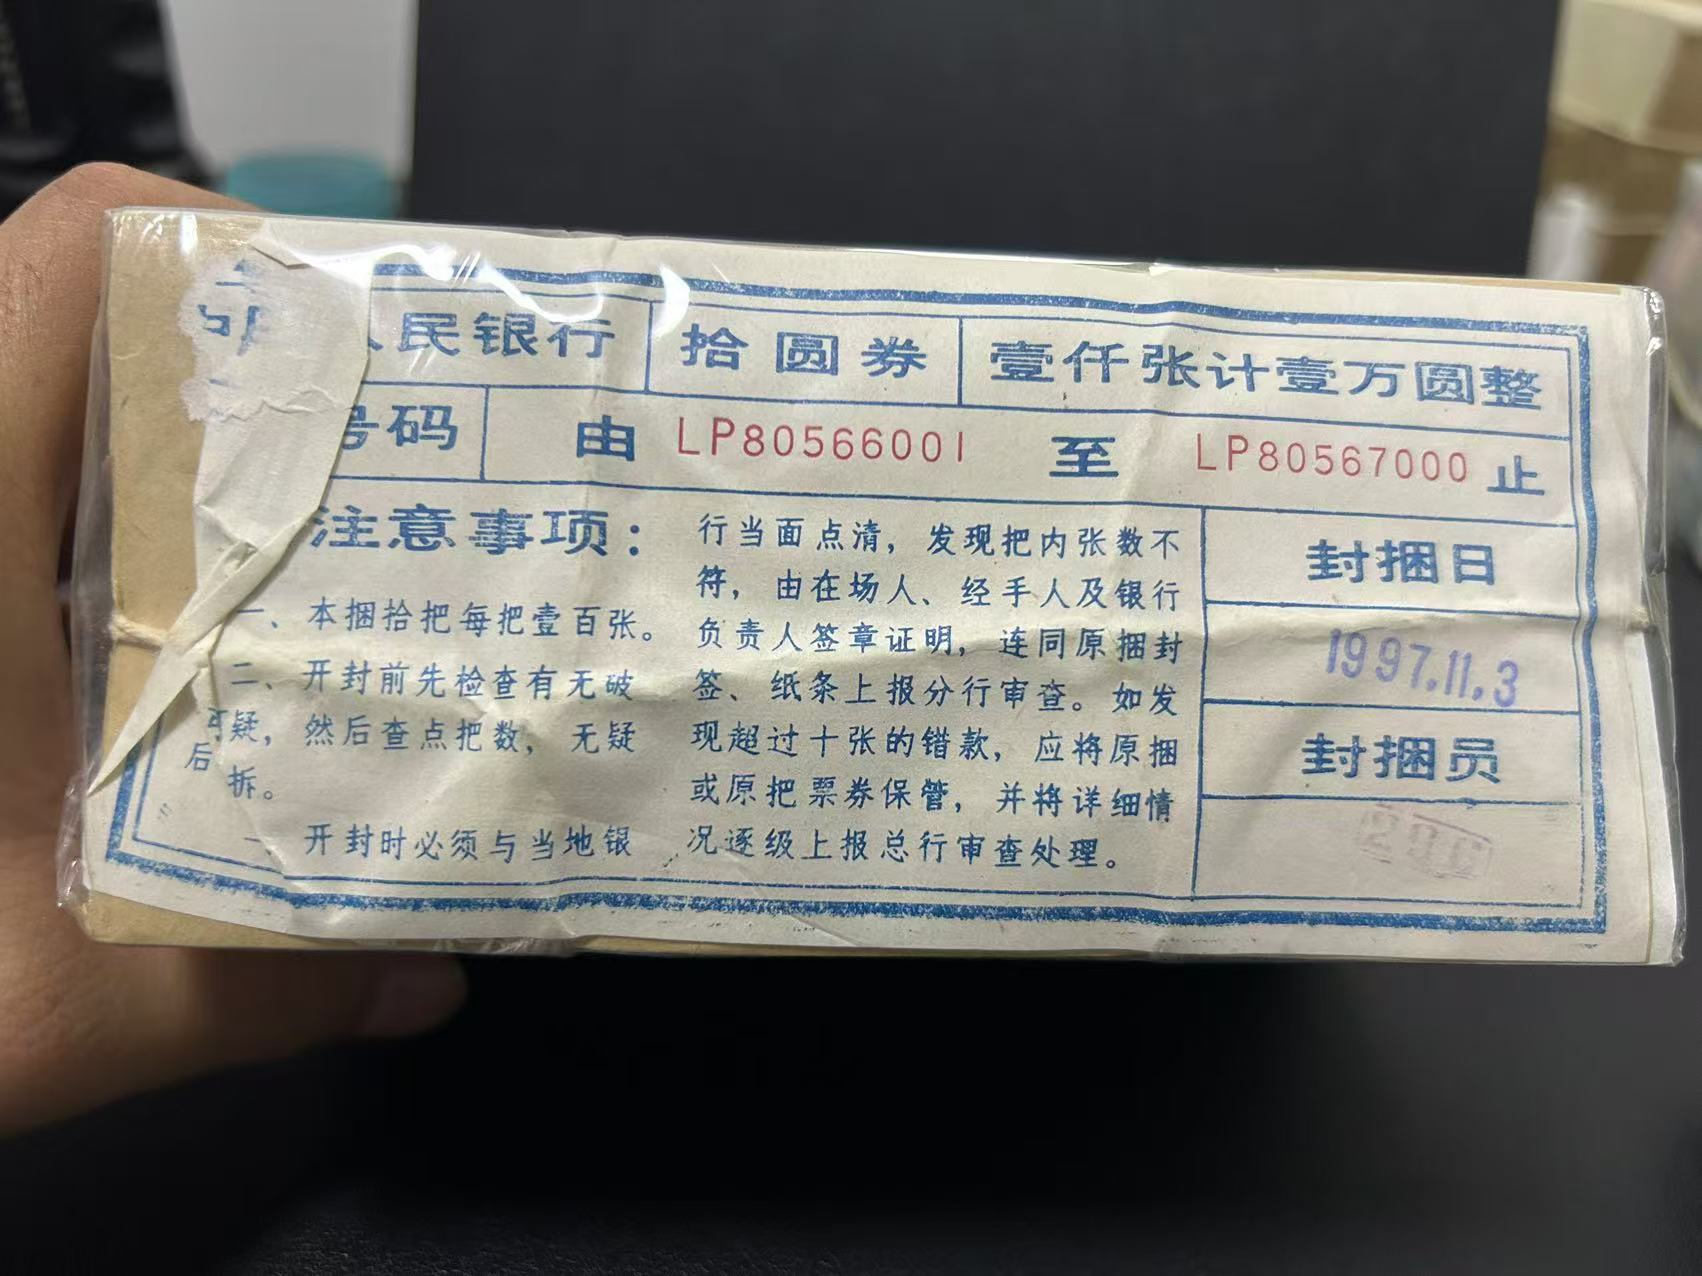 人民银行 拾圆券 壹仟张计壹万圆整
号码 由 LP80566001 至 LP80567000 止
注意事项：
一、本捆拾把每把壹百张。
二、开封前先检查有无破
可疑，然后查点把数，无疑
后拆。
开封时必须与当地银
行当面点清，发现把内张数不
符，由在场人、经手人及银行
负责人签章证明，连同原捆封
签、纸条上报分行审查。如发
现超过十张的错款，应将原捆
或原把票券保管，并将详细情
况逐级上报总行审查处理。
封捆日
1997.11.3
封捆员